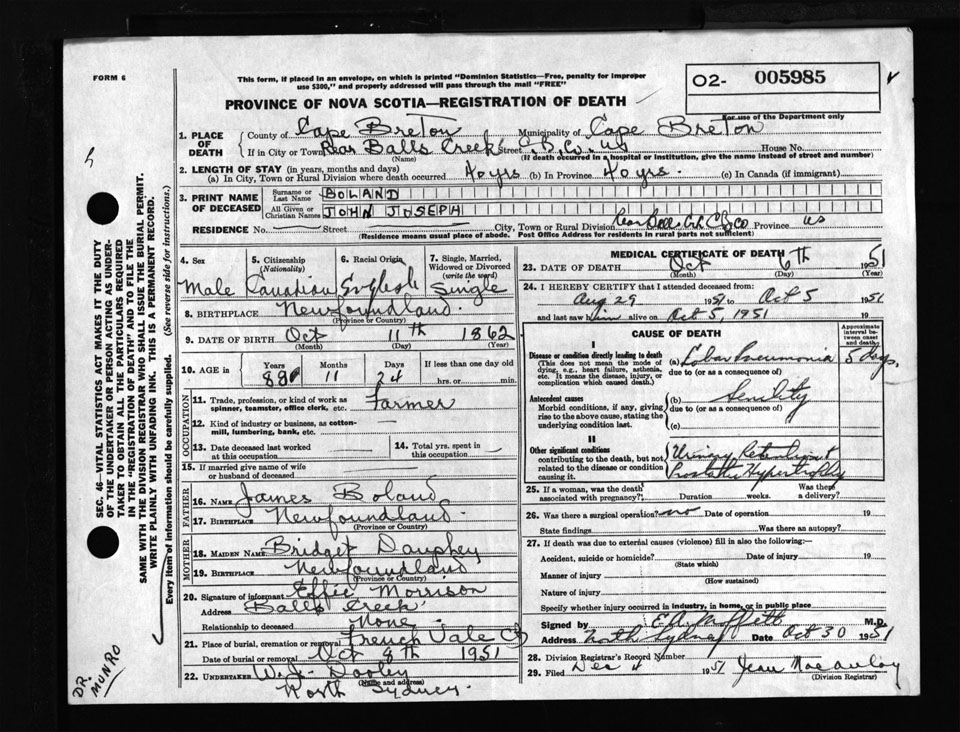 FORM 6
This form, if placed in an envelope, on which is printed "Dominion Statistics—Free, penalty for improper
use $300," and properly addressed will pass through the mail "FREE"
O2- 005985
For use of the Department only
PROVINCE OF NOVA SCOTIA—REGISTRATION OF DEATH
1. PLACE OF DEATH
County of Cape Breton Municipality of Cape Breton
If in City or Town Rear Balls Creek Street C.B. Co. NS House No.
(Name) (If death occurred in a hospital or institution, give the name instead of street and number)
2. LENGTH OF STAY (in years, months and days)
(a) In City, Town or Rural Division where death occurred 40 yrs (b) In Province 40 yrs. (c) In Canada (if immigrant)
3. PRINT NAME OF DECEASED
Surname or Last Name BOLAND
All Given or Christian Names JOHN JOSEPH
RESIDENCE No. Street City, Town or Rural Division Rear Balls Ck C B Co Province NS
(Residence means usual place of abode. Post Office Address for residents in rural parts not sufficient)
4. Sex 5. Citizenship (Nationality) 6. Racial Origin 7. Single, Married, Widowed or Divorced (write the word)
Male Canadian English Single
8. BIRTHPLACE Newfoundland.
(Province or Country)
9. DATE OF BIRTH Oct 11th 1862
(Month) (Day) (Year)
10. AGE in Years Months Days If less than one day
88 11 24 hrs. or min.
OCCUPATION
11. Trade, profession, or kind of work as
spinner, teamster, office clerk, etc. Farmer
12. Kind of industry or business, as cotton-
mill, lumbering, bank, etc. —
13. Date deceased last worked at this occupation — 14. Total yrs. spent in this occupation —
15. If married give name of wife
or husband of deceased
FATHER
16. NAME James Boland
17. BIRTHPLACE Newfoundland.
(Province or Country)
MOTHER
18. MAIDEN NAME Bridget Dauphey
19. BIRTHPLACE Newfoundland
(Province or Country)
20. Signature of informant Effie Morrison
Address Balls Creek
Relationship to deceased None.
21. Place of burial, cremation or removal French Vale CB
Date of burial or removal Oct 8th 1951
22. UNDERTAKER W.J. Dooley
(Name and address)
North Sydney.
MEDICAL CERTIFICATE OF DEATH
23. DATE OF DEATH Oct 6th 1951
(Month) (Day) (Year)
24. I HEREBY CERTIFY that I attended deceased from:
Aug 29 1951 to Oct 5 1951
and last saw him alive on Oct 5, 1951 19
CAUSE OF DEATH
Approximate interval between onset and death
I
Disease or condition directly leading to death
(This does not mean the mode of
dying, e.g., heart failure, asthenia,
etc. It means the disease, injury, or
complication which caused death.
(a) Lobar Pneumonia 5 days.
due to (or as a consequence of)
Antecedent causes
Morbid conditions, if any, giving
rise to the above cause, stating the
underlying condition last.
(b) Senility
due to (or as a consequence of)
(c)
II
Other significant conditions
contributing to the death, but not
related to the disease or condition
causing it.
Urinary Retention &
Prostatic Hypertrophy
25. If a woman, was the death
associated with pregnancy? Duration weeks. Was there a delivery?
26. Was there surgical operation? no Date of operation 19
State findings Was there an autopsy?
27. If death was due to external causes (violence) fill in also the following:
Accident, suicide or homicide? Date of injury 19
(State which)
Manner of injury
(How sustained)
Nature of injury
Specify whether injury occurred in industry, in home, or in public place
Signed by E.A. Moffett M.D.
Address North Sydney Date Oct 30 1951
28. Division Registrar's Record Number
29. Filed Dec 4 1951 Jean Macaulay
(Division Registrar)
SEC. 46—VITAL STATISTICS ACT MAKES IT THE DUTY
OF THE UNDERTAKER OR PERSON ACTING AS UNDER-
TAKER TO OBTAIN ALL THE PARTICULARS REQUIRED
IN THE "REGISTRATION OF DEATH" AND TO FILE THE
SAME WITH THE DIVISION REGISTRAR WHO SHALL ISSUE THE BURIAL PERMIT.
WRITE PLAINLY WITH UNFADING INK. THIS IS A PERMANENT RECORD.
Every item of information should be carefully supplied. (See reverse side for instructions.)
DR. MUNRO